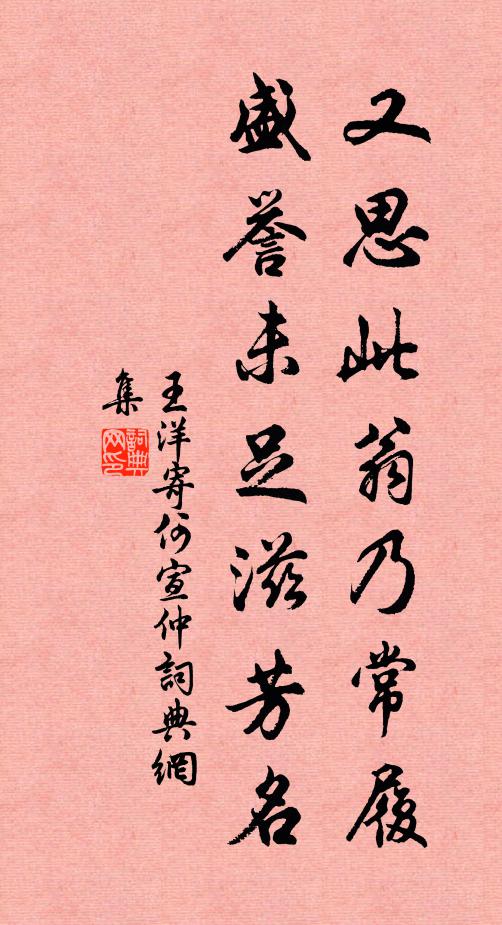 又思此翁乃常履
盛誉未足滋芳名
王洋寄何宣仲詞典網
集
詞典
网印